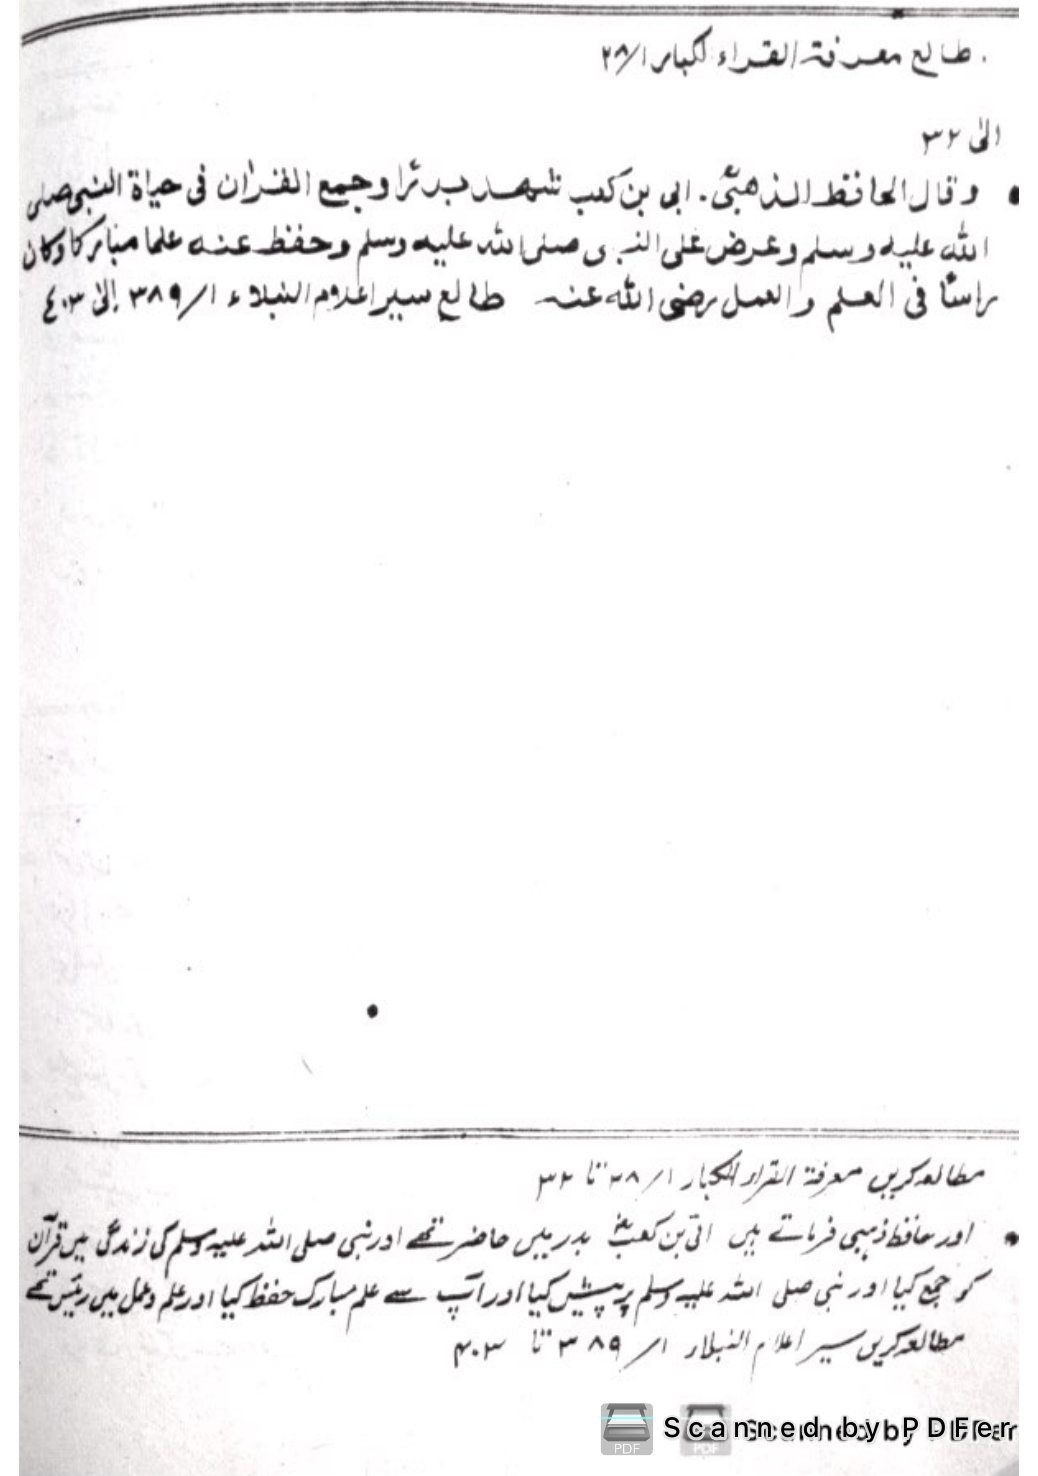 . طالع معرفة القراء الکبار ۱/۲۸
الیٰ ۳۲
• وقال الحافظ الذهبیؒ. ابی بن کعب شهد بدرًا وجمع القرٰان فی حیاة النبی صلی
الله علیه وسلم وعرض علی النبی صلی الله علیه وسلم وحفظ عنه علما مبارکا وکان
راسًا فی العلم والعمل رضی الله عنه طالع سیر اعلام النبلاء ۱/۳۸۹ الیٰ ٤۰۳
مطالعہ کریں معرفة القراء الکبار ۱/۲۸ تا ۳۲
• اور حافظ ذہبی فرماتے ہیں ابی بن کعبؓ بدر میں حاضر تھے اور نبی صلی اللہ علیہ وسلم کی زندگی میں قرآن
کو جمع کیا اور نبی صلی اللہ علیہ وسلم پر پیش کیا اور آپ سے علم مبارک حفظ کیا اور علم وعمل میں رئیس تھے
مطالعہ کریں سیر اعلام النبلاء ۱/۳۸۹ تا ۴۰۳
Scanned by PDFer
Scanned by PDFer